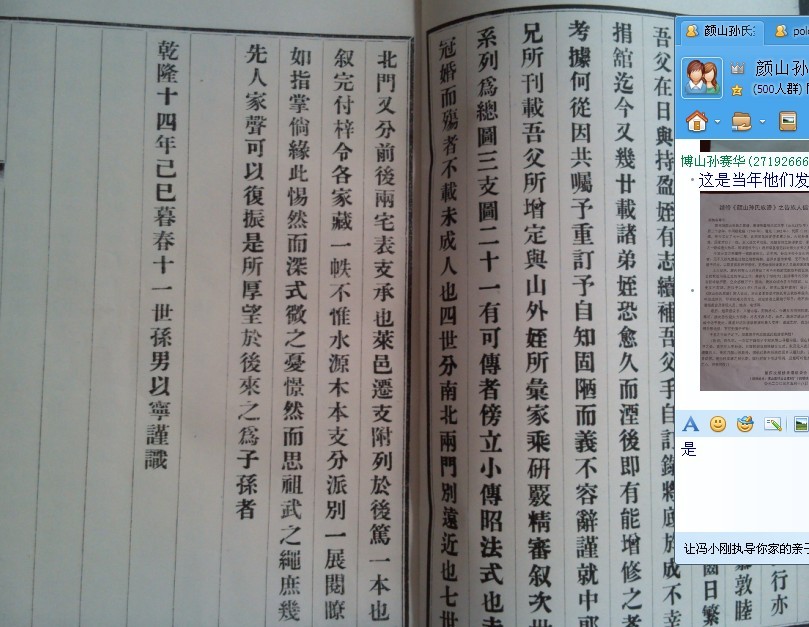 行亦
敦睦
日繁
吾父在日與持盈姪有志續補吾父手自訂錄將底於成不幸
捐舘迄今又幾廿載諸弟姪恐愈久而湮後即有能增修之者
考據何從因共囑予重訂予自知固陋而義不容辭謹就中
兄所刊載吾父所增定與山外姪所彙家乘研覈精審叙次世
系列爲總圖三支圖二十一有可傳者傍立小傳昭法式也未
冠婚而殤者不載未成人也四世分南北兩門別遠近也七世
北門又分前後兩宅表支承也萊邑遷支附列於後篤一本也
叙完付梓令各家藏一帙不惟水源木本支分派別一展閱瞭
如指掌倘緣此惕然而深式微之憂憬然而思祖武之繩庶幾
先人家聲可以復振是所厚望於後來之爲子孫者
乾隆十四年己巳暮春十一世孫男以寧謹識
颜山孙氏
颜山孙
(500人群)
博山孙赛华(27192666
这是当年他们发
是
让冯小刚执导你家的亲子